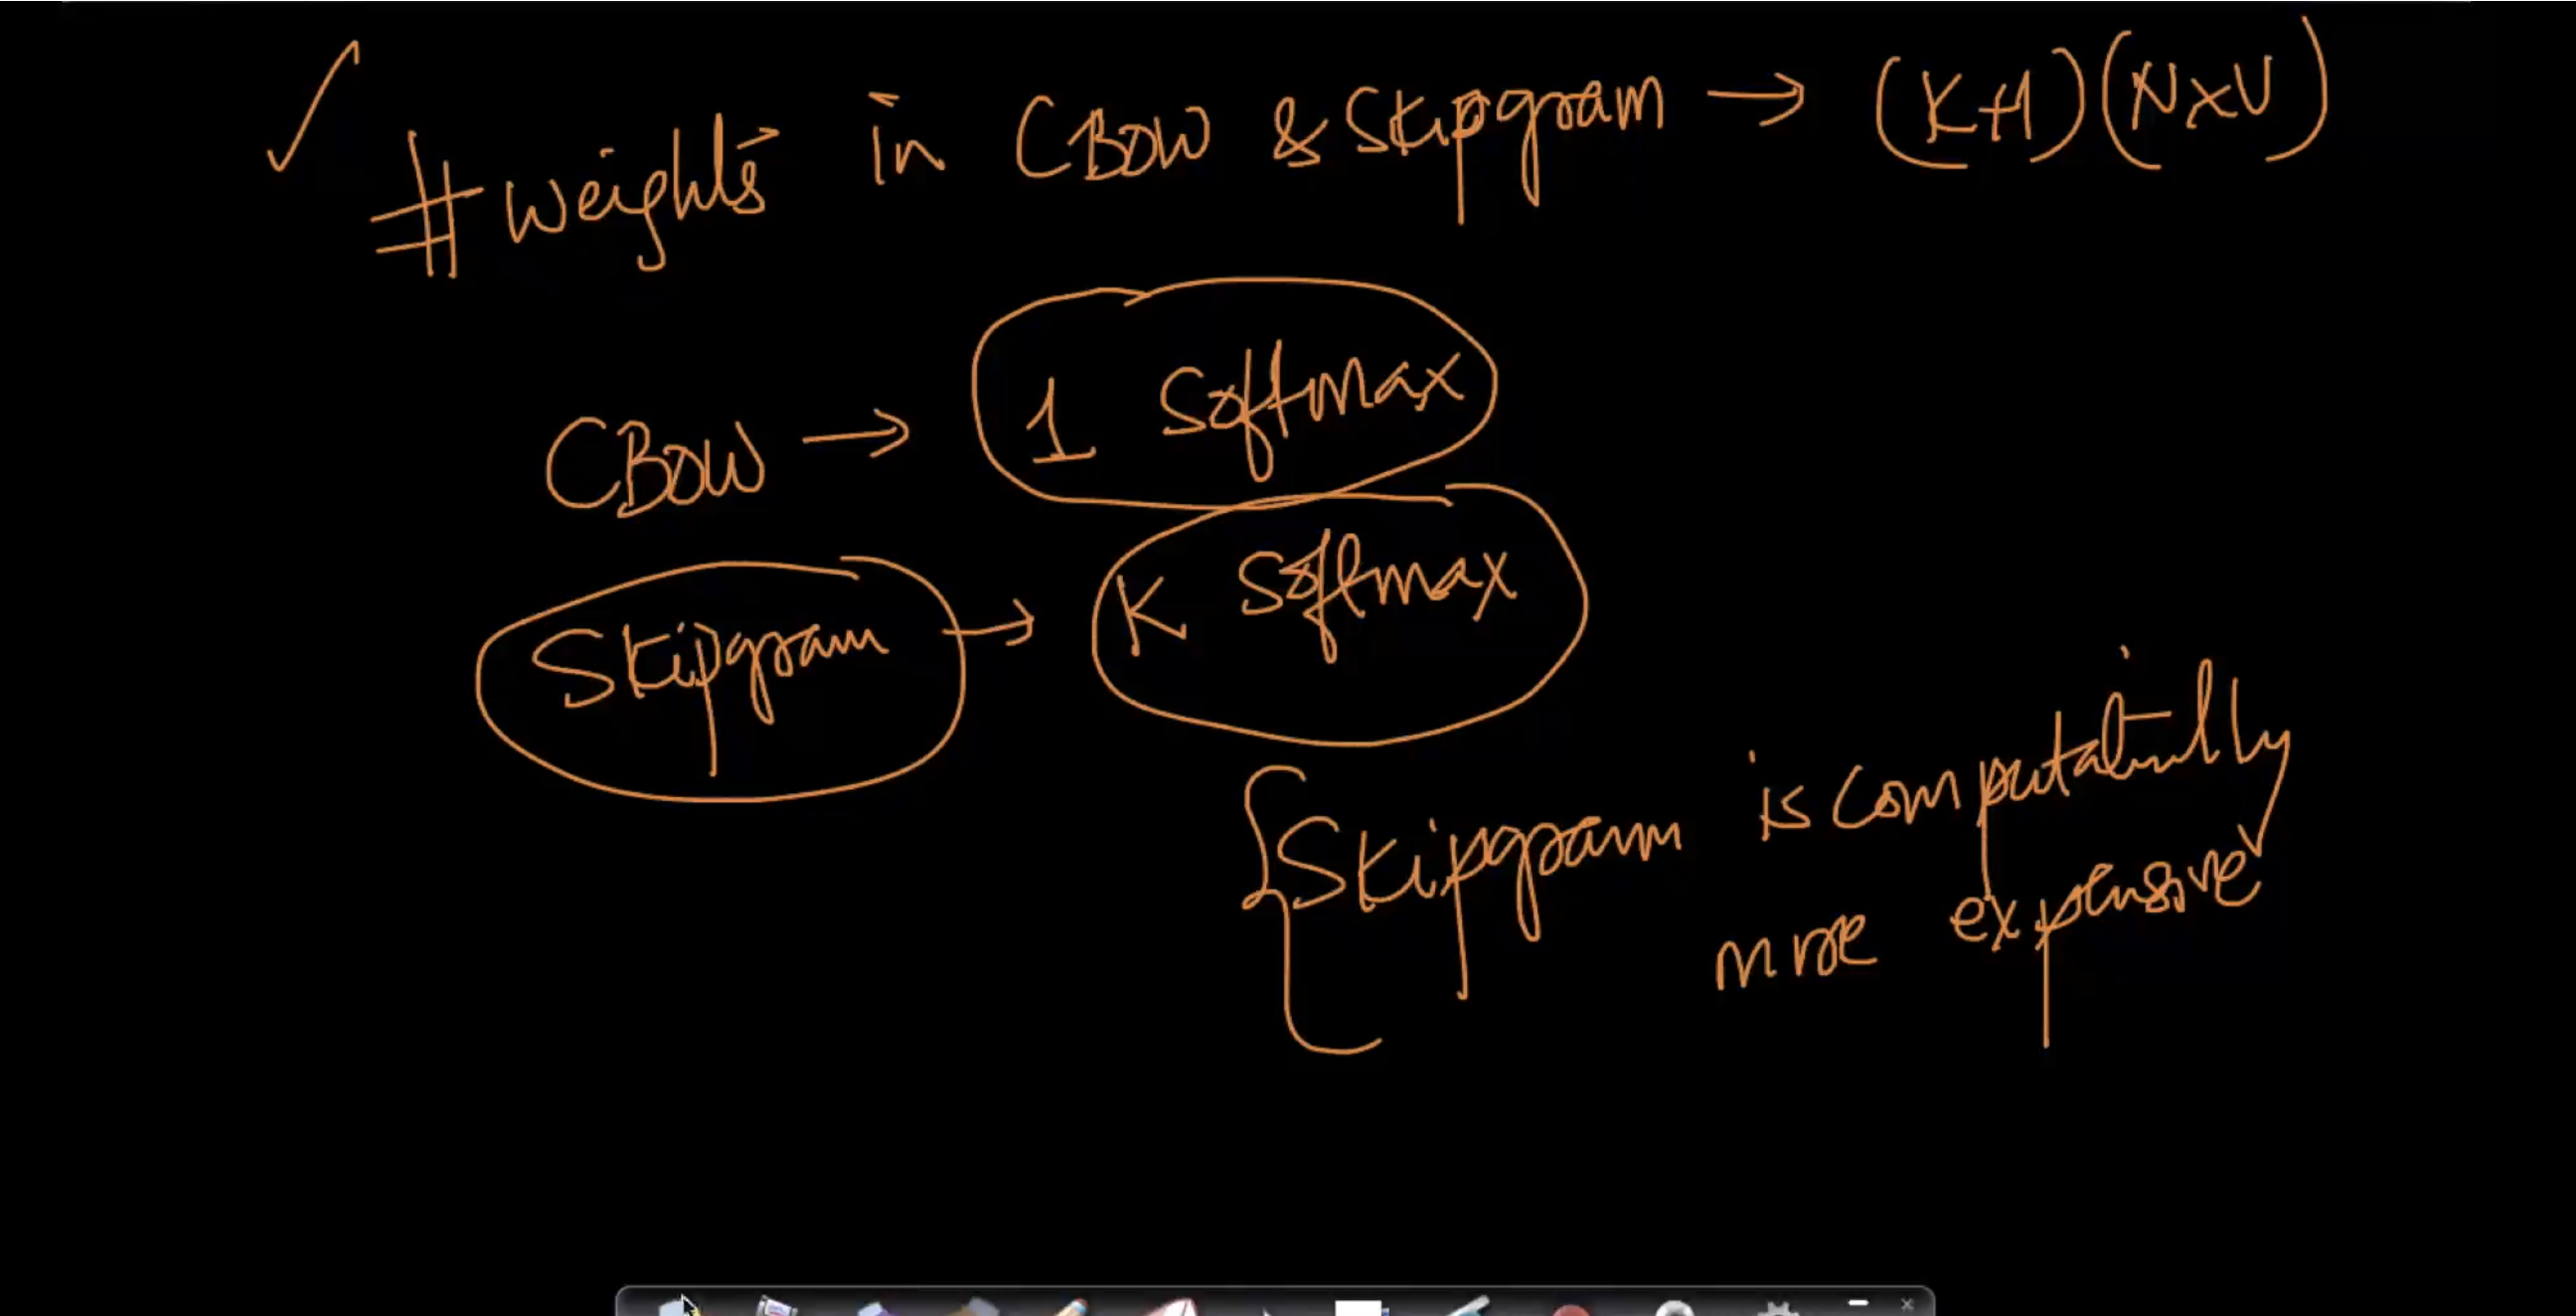 # weights in CBOW & Skipgram → (K+1)(N×V)
CBOW → 1 Softmax
Skipgram → K Softmax
Skipgram is computationally
more expensive